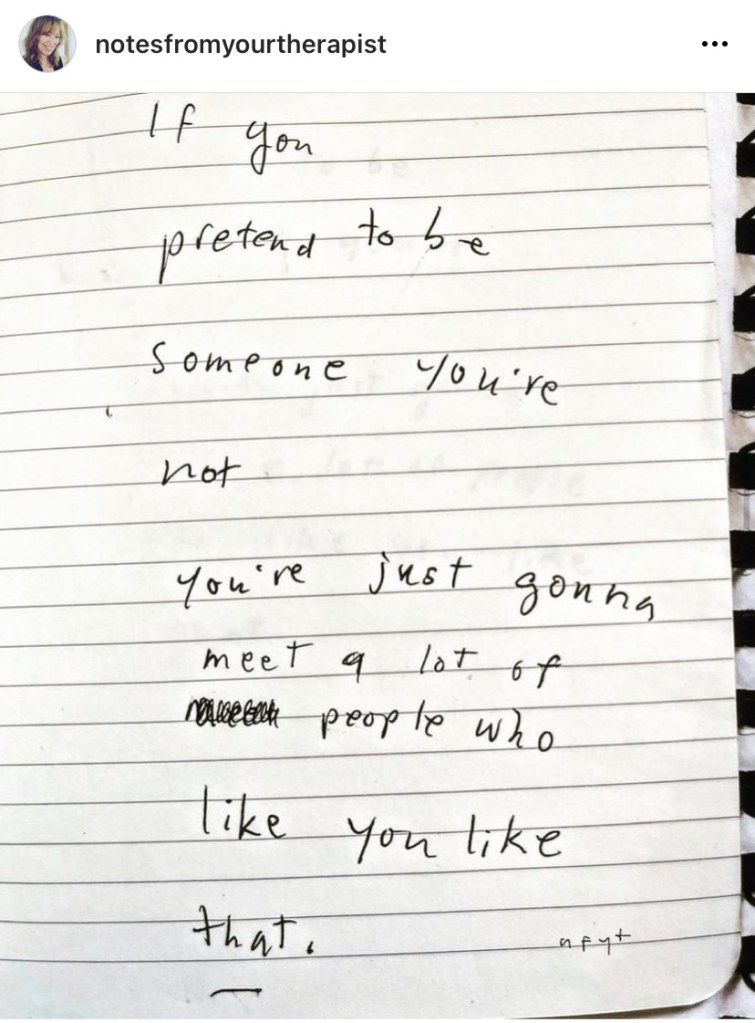 notesfromyourtherapist
If you
pretend to be
someone you're
not
you're just gonna
meet a lot of
people who
like you like
that.
nfyt